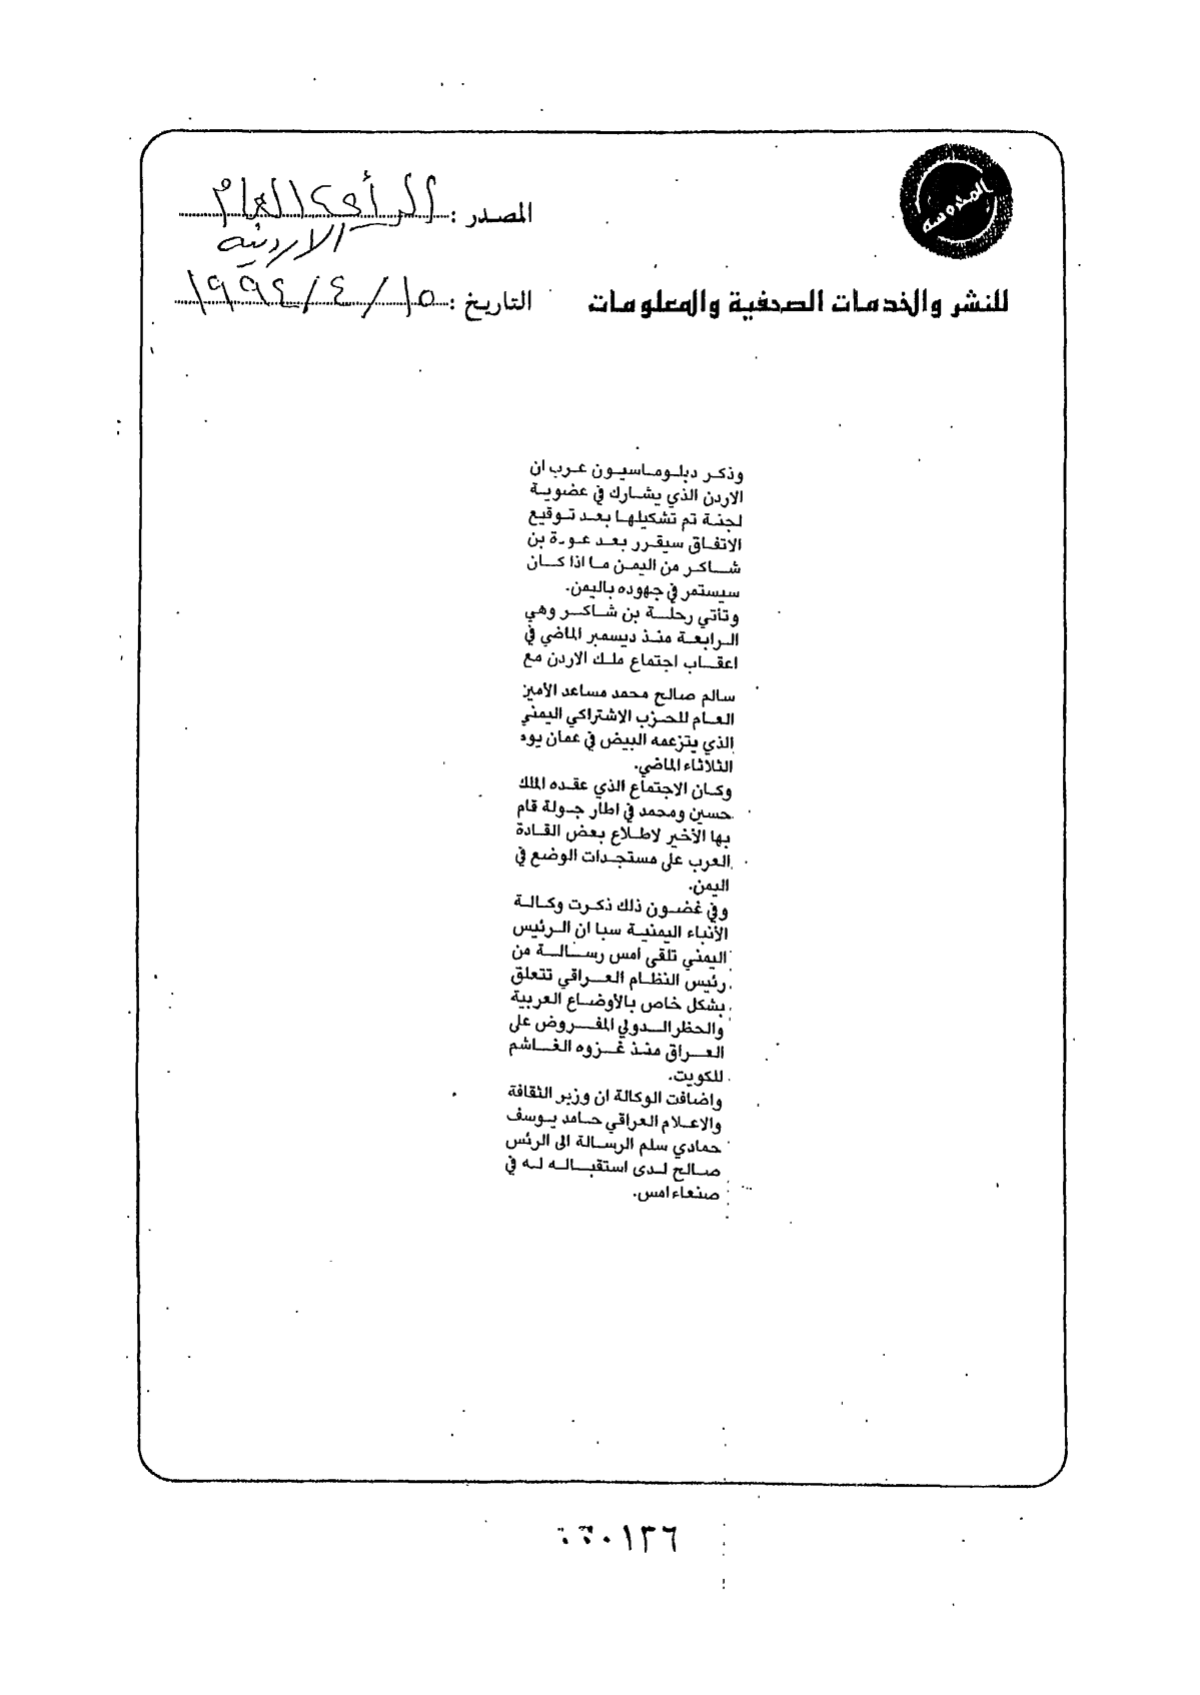 المحروسة
للنشر والخدمات الصحفية والمعلومات
المصدر : الرأي العام
الاردنية
التاريخ : ١٥ / ٤ / ١٩٩٤
وذكر دبلوماسيون عرب ان
الاردن الذي يشارك في عضوية
لجنة تم تشكيلها بعد توقيع
الاتفاق سيقرر بعد عودة بن
شاكر من اليمن ما اذا كان
سيستمر في جهوده باليمن.
وتأتي رحلة بن شاكر وهي
الرابعة منذ ديسمبر الماضي في
اعقاب اجتماع ملك الاردن مع
سالم صالح محمد مساعد الأمين
العام للحزب الاشتراكي اليمني
الذي يتزعمه البيض في عمان يوم
الثلاثاء الماضي.
وكان الاجتماع الذي عقده الملك
حسين ومحمد في اطار جولة قام
بها الأخير لاطلاع بعض القادة
العرب على مستجدات الوضع في
اليمن.
وفي غضون ذلك ذكرت وكالة
الأنباء اليمنية سبا ان الرئيس
اليمني تلقى امس رسالة من
رئيس النظام العراقي تتعلق
بشكل خاص بالأوضاع العربية
والحظر الدولي المفروض على
العراق منذ غزوه الغاشم
للكويت.
واضافت الوكالة ان وزير الثقافة
والاعلام العراقي حامد يوسف
حمادي سلم الرسالة الى الرئس
صالح لدى استقباله له في
صنعاء امس.